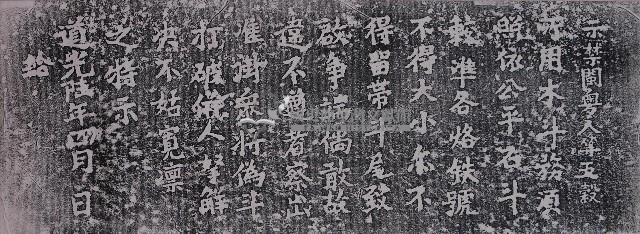 示禁閩粵人等五穀
所用木斗務須
照依公平石斗
較準各烙鉄號
不得大小亦不
得留帶斗尾致
啟争端倘敢故
違不遵者察出
准街眾將偽斗
打破俻人拏解
決不姑寬禀
之特示
道光陸年四月 日
給